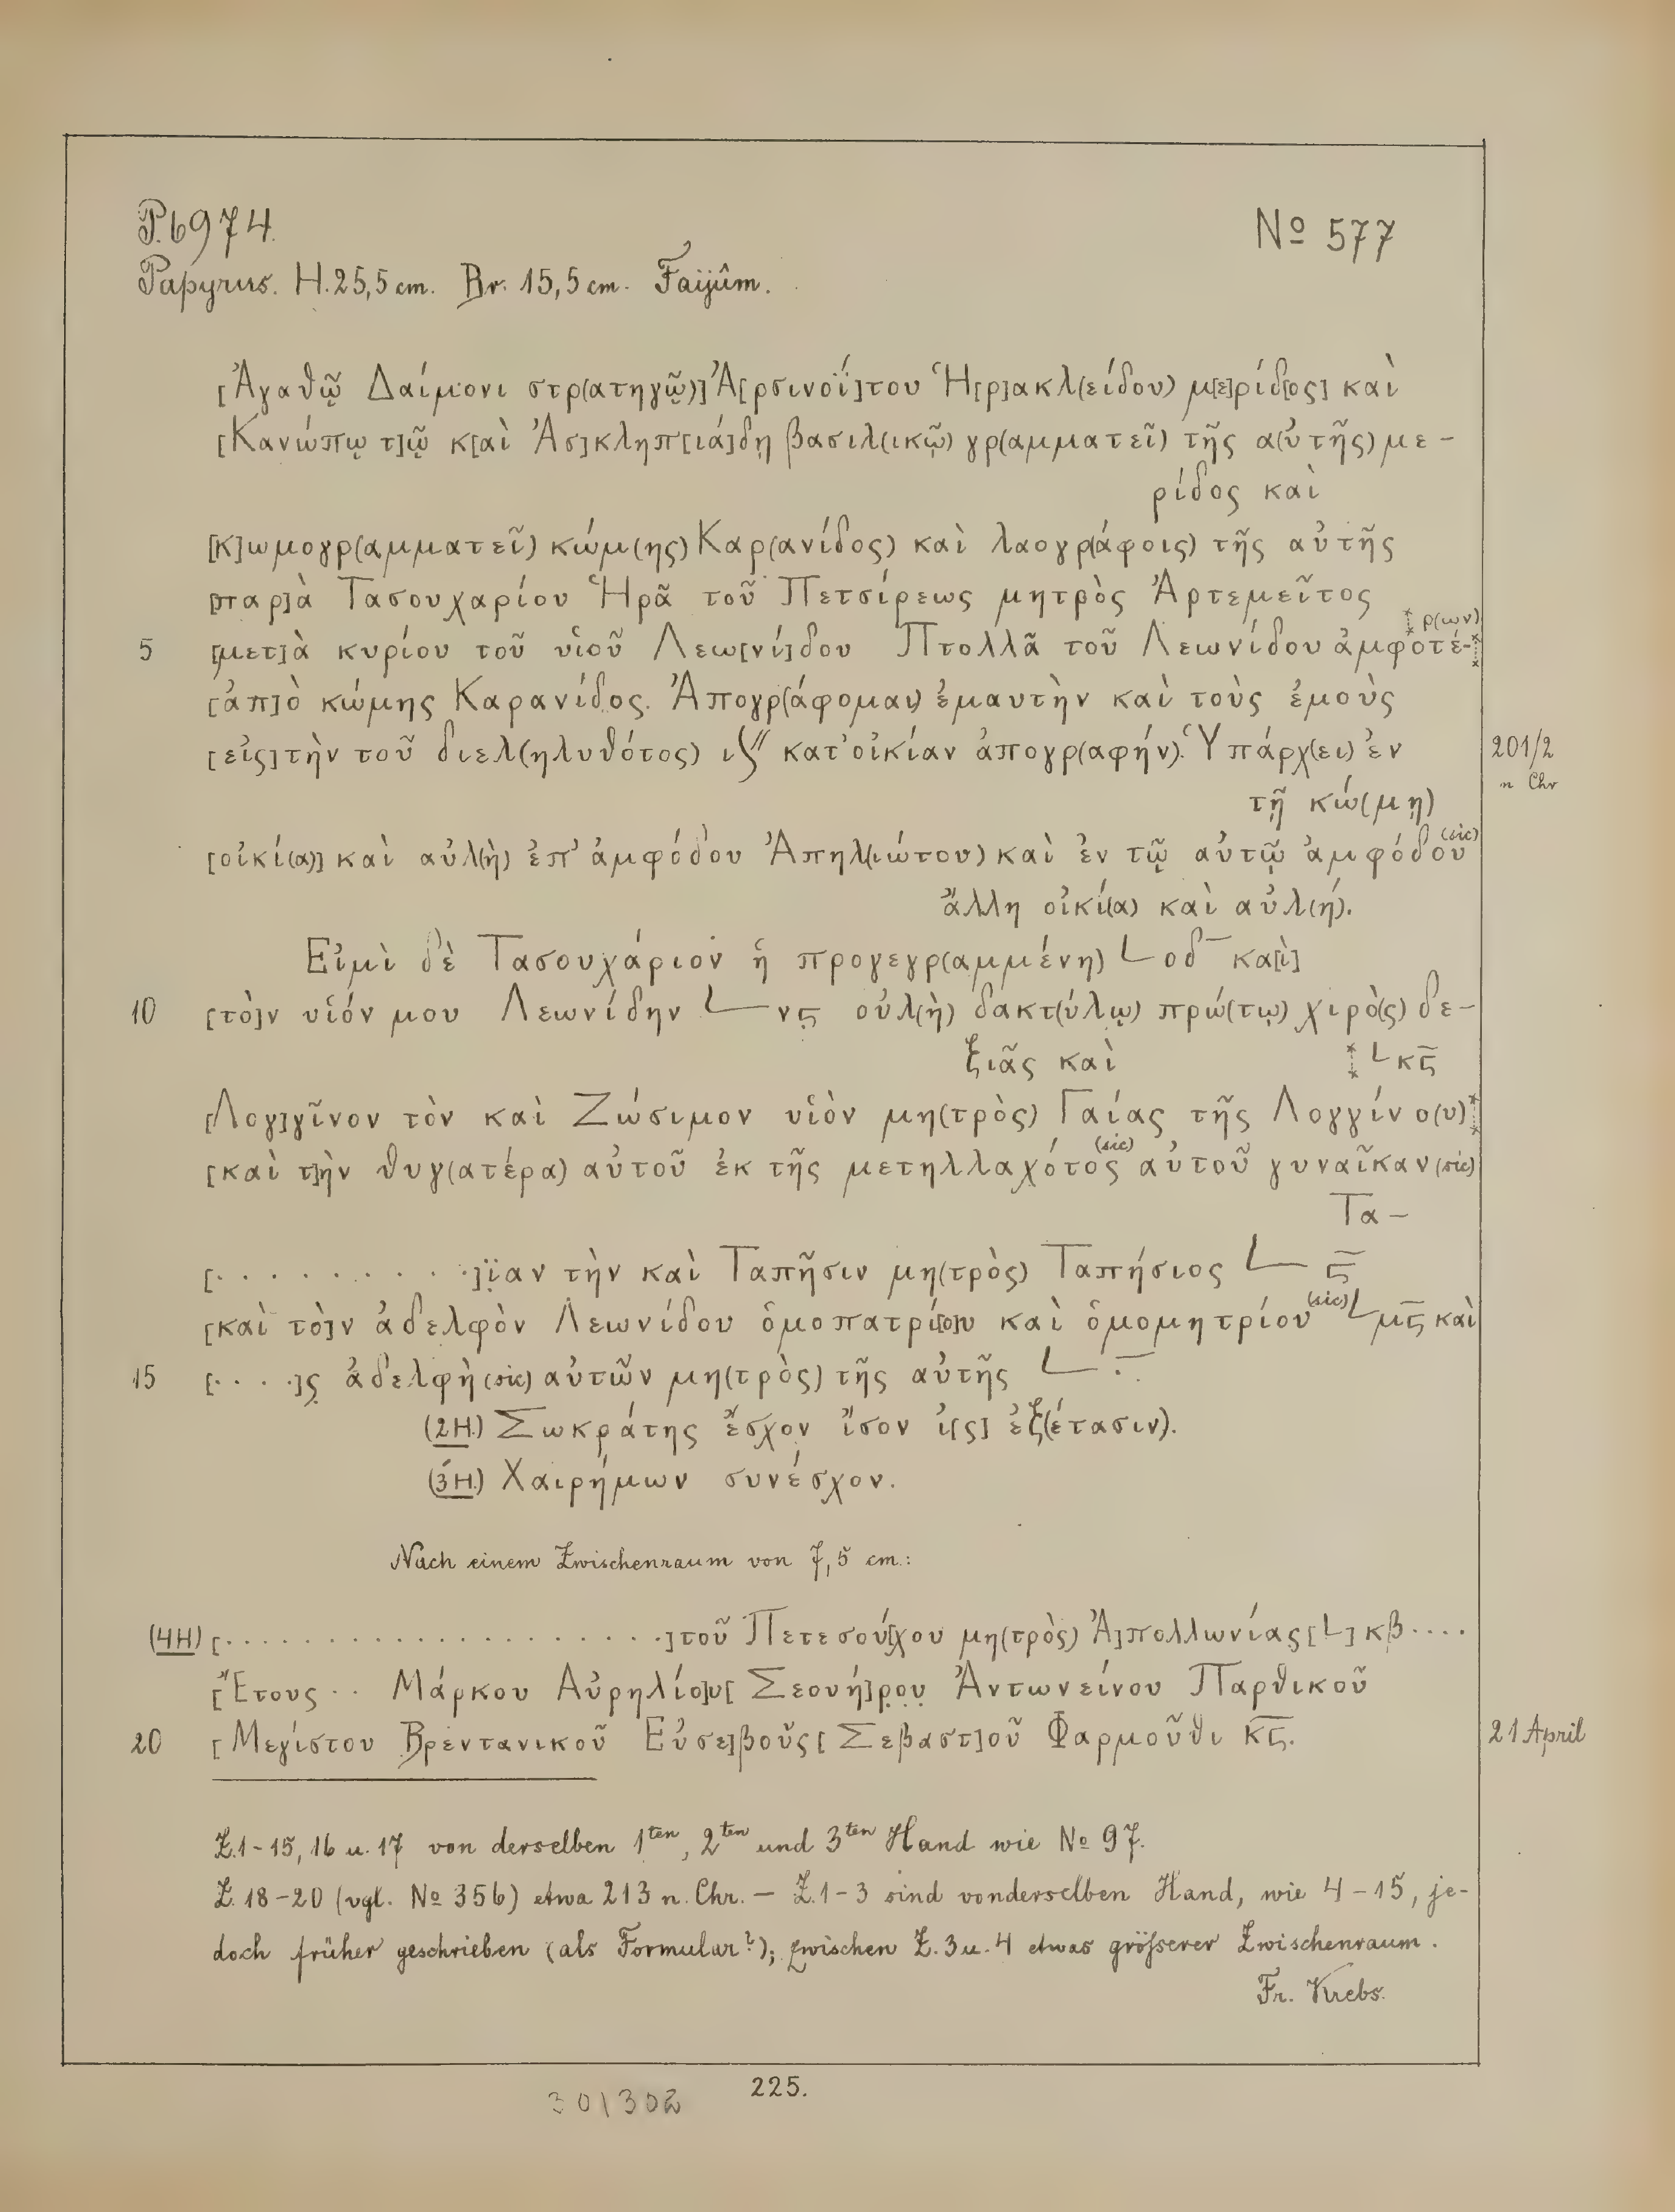 P. 6974.
Nº 577
Papyrus. H. 25,5 cm. Br. 15,5 cm. Faijûm.
[Ἀγαθῷ Δαίμονι στρ(ατηγῷ)] Ἀ[ρσινοΐ]του Ἡ[ρ]ακλ(είδου) μ[ε]ρίδ[ος] καὶ
[Κανώπῳ τ]ῷ κ[αὶ Ἀσ]κληπ[ιά]δῃ βασιλ(ικῷ) γρ(αμματεῖ) τῆς α(ὐτῆς) με-
ρίδος καὶ
[κ]ωμογρ(αμματεῖ) κώμ(ης) Καρ(ανίδος) καὶ λαογρ(άφοις) τῆς αὐτῆς
[παρ]ὰ Τασουχαρίου Ἡρᾶ τοῦ Πετσίρεως μητρὸς Ἀρτεμεῖτος
ρ(ων)
5 [μετ]ὰ κυρίου τοῦ υἱοῦ Λεω[νί]δου Πτολλᾶ τοῦ Λεωνίδου ἀμφοτέ-
[ἀπ]ὸ κώμης Καρανίδος. Ἀπογρ(άφομαι) ἐμαυτὴν καὶ τοὺς ἐμοὺς
[εἰς] τὴν τοῦ διελ(ηλυθότος) ιϛ′′ κατ' οἰκίαν ἀπογρ(αφήν). Ὑπάρχ(ει) ἐν 201/2
n Chr
τῇ κώ(μῃ)
[οἰκί(α)] καὶ αὐλ(ὴ) ἐπ' ἀμφόδου Ἀπηλ(ιώτου) καὶ ἐν τῷ αὐτῷ ἀμφόδου (sic)
ἄλλη οἰκί(α) καὶ αὐλ(ή).
Εἰμὶ δὲ Τασουχάριον ἡ προγεγρ(αμμένη) L οδ‾ κα[ὶ]
10 [τὸ]ν υἱόν μου Λεωνίδην L νϛ οὐλ(ὴ) δακτ(ύλῳ) πρώ(τῳ) χιρὸ(ς) δε-
ξιᾶς καὶ L κϛ‾
[Λογ]γῖνον τὸν καὶ Ζώσιμον υἱὸν μη(τρὸς) Γαίας τῆς Λογγίνο(υ)
[καὶ τ]ὴν θυγ(ατέρα) αὐτοῦ ἐκ τῆς μετηλλαχότος (sic) αὐτοῦ γυναῖκαν (sic)
Τα-
[. . . . . . . . .]ϊαν τὴν καὶ Ταπῆσιν μη(τρὸς) Ταπήσιος L ϛ‾
[καὶ τὸ]ν ἀδελφὸν Λεωνίδου ὁμοπατρί[ο]υ καὶ ὁμομητρίου (sic) L μϛ‾ καὶ
15 [. . . .]ς ἀδελφὴ (sic) αὐτῶν μη(τρὸς) τῆς αὐτῆς L . .
(2H.) Σωκράτης ἔσχον ἴσον ἰ[ς] ἐξ(έτασιν).
(3H.) Χαιρήμων συνέσχον.
Nach einem Zwischenraum von 7,5 cm.:
(4H) [. . . . . . . . . . . . . . . . . . . .] τοῦ Πετεσού[χου μη(τρὸς) Ἀ]πολλωνίας [L] κβ . . . .
[Ἔτους . . Μάρκου Αὐρηλίο]υ [Σεουή]ρου Ἀντωνείνου Παρθικοῦ
20 [Μεγίστου Βρεντανικοῦ Εὐσε]βοῦς [Σεβαστ]οῦ Φαρμοῦθι κϛ‾. 21 April
Z. 1-15, 16 u. 17 von derselben 1ten, 2ten und 3ten Hand wie Nº 97.
Z. 18-20 (vgl. Nº 356) etwa 213 n. Chr. — Z. 1-3 sind von derselben Hand, wie 4-15, je-
doch früher geschrieben (als Formular?); zwischen Z. 3 u. 4 etwas grösserer Zwischenraum.
Fr. Krebs.
225.
301302